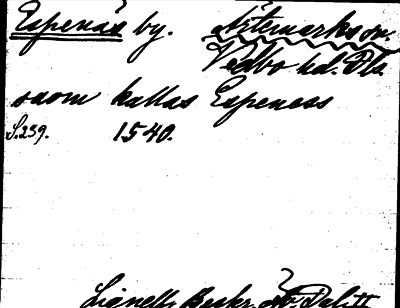 Espenäs by. Ärtemarks sn.
Vedbo hd. Dls.
saom kallas Espeness
S.239. 1540.
Lignell, Beskr. Dalsl